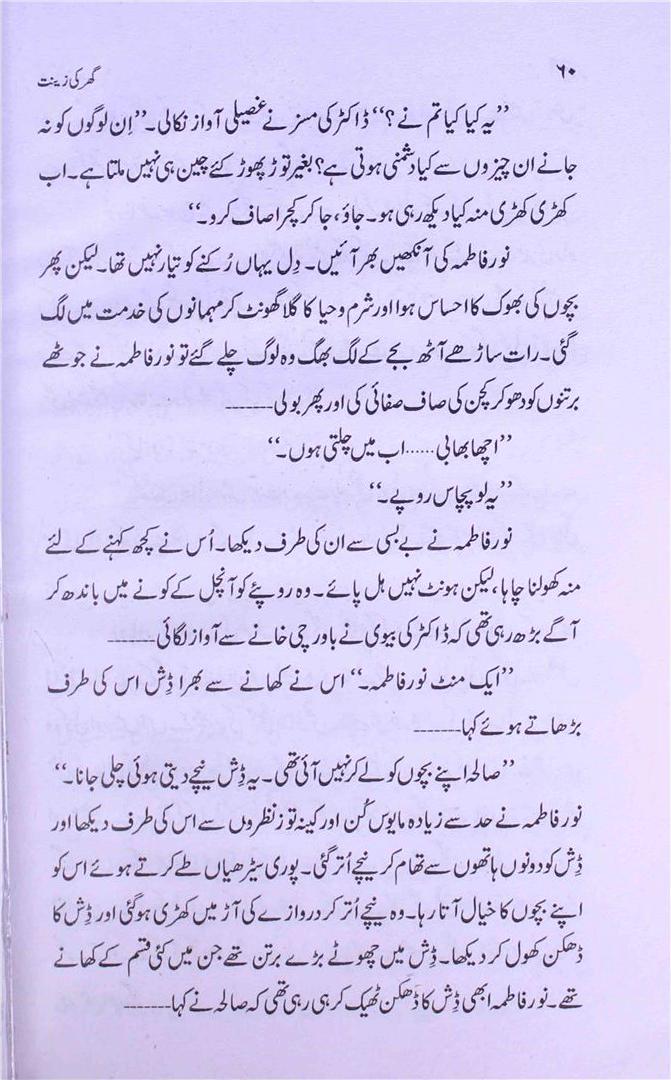 ۶۰ گھر کی زینت
”یہ کیا کیا تم نے؟“ ڈاکٹر کی مسز نے غصیلی آواز نکالی۔ ”اِن لوگوں کو نہ
جانے ان چیزوں سے کیا دشمنی ہوتی ہے؟ بغیر توڑ پھوڑ کئے چین ہی نہیں ملتا ہے۔ اب
کھڑی کھڑی منہ کیا دیکھ رہی ہو۔ جاؤ، جا کر کچرا صاف کرو۔“
نور فاطمہ کی آنکھیں بھر آئیں۔ دِل یہاں رُکنے کو تیار نہیں تھا۔ لیکن پھر
بچوں کی بھوک کا احساس ہوا اور شرم و حیا کا گلا گھونٹ کر مہمانوں کی خدمت میں لگ
گئی۔ رات ساڑھے آٹھ بجے کے لگ بھگ وہ لوگ چلے گئے تو نور فاطمہ نے جوٹھے
برتنوں کو دھو کر کچن کی صاف صفائی کی اور پھر بولی -------
”اچھا بھابی ...... اب میں چلتی ہوں۔“
”یہ لو پچاس روپے۔“
نور فاطمہ نے بے بسی سے ان کی طرف دیکھا۔ اُس نے کچھ کہنے کے لئے
منہ کھولنا چاہا، لیکن ہونٹ نہیں ہل پائے۔ وہ روپئے کو آنچل کے کونے میں باندھ کر
آگے بڑھ رہی تھی کہ ڈاکٹر کی بیوی نے باورچی خانے سے آواز لگائی -------
”ایک منٹ نور فاطمہ۔“ اس نے کھانے سے بھرا ڈِش اس کی طرف
بڑھاتے ہوئے کہا -------
”صالحہ اپنے بچوں کو لے کر نہیں آئی تھی۔ یہ ڈِش نیچے دیتی ہوئی چلی جانا۔“
نور فاطمہ نے حد سے زیادہ مایوس کُن اور کینہ توز نظروں سے اس کی طرف دیکھا اور
ڈِش کو دونوں ہاتھوں سے تھام کر نیچے اُتر گئی۔ پوری سیڑھیاں طے کرتے ہوئے اس کو
اپنے بچوں کا خیال آتا رہا۔ وہ نیچے اُتر کر دروازے کی آڑ میں کھڑی ہو گئی اور ڈِش کا
ڈھکن کھول کر دیکھا۔ ڈِش میں چھوٹے بڑے برتن تھے جن میں کئی قسم کے کھانے
تھے۔ نور فاطمہ ابھی ڈِش کا ڈھکن ٹھیک کر ہی رہی تھی کہ صالحہ نے کہا -------